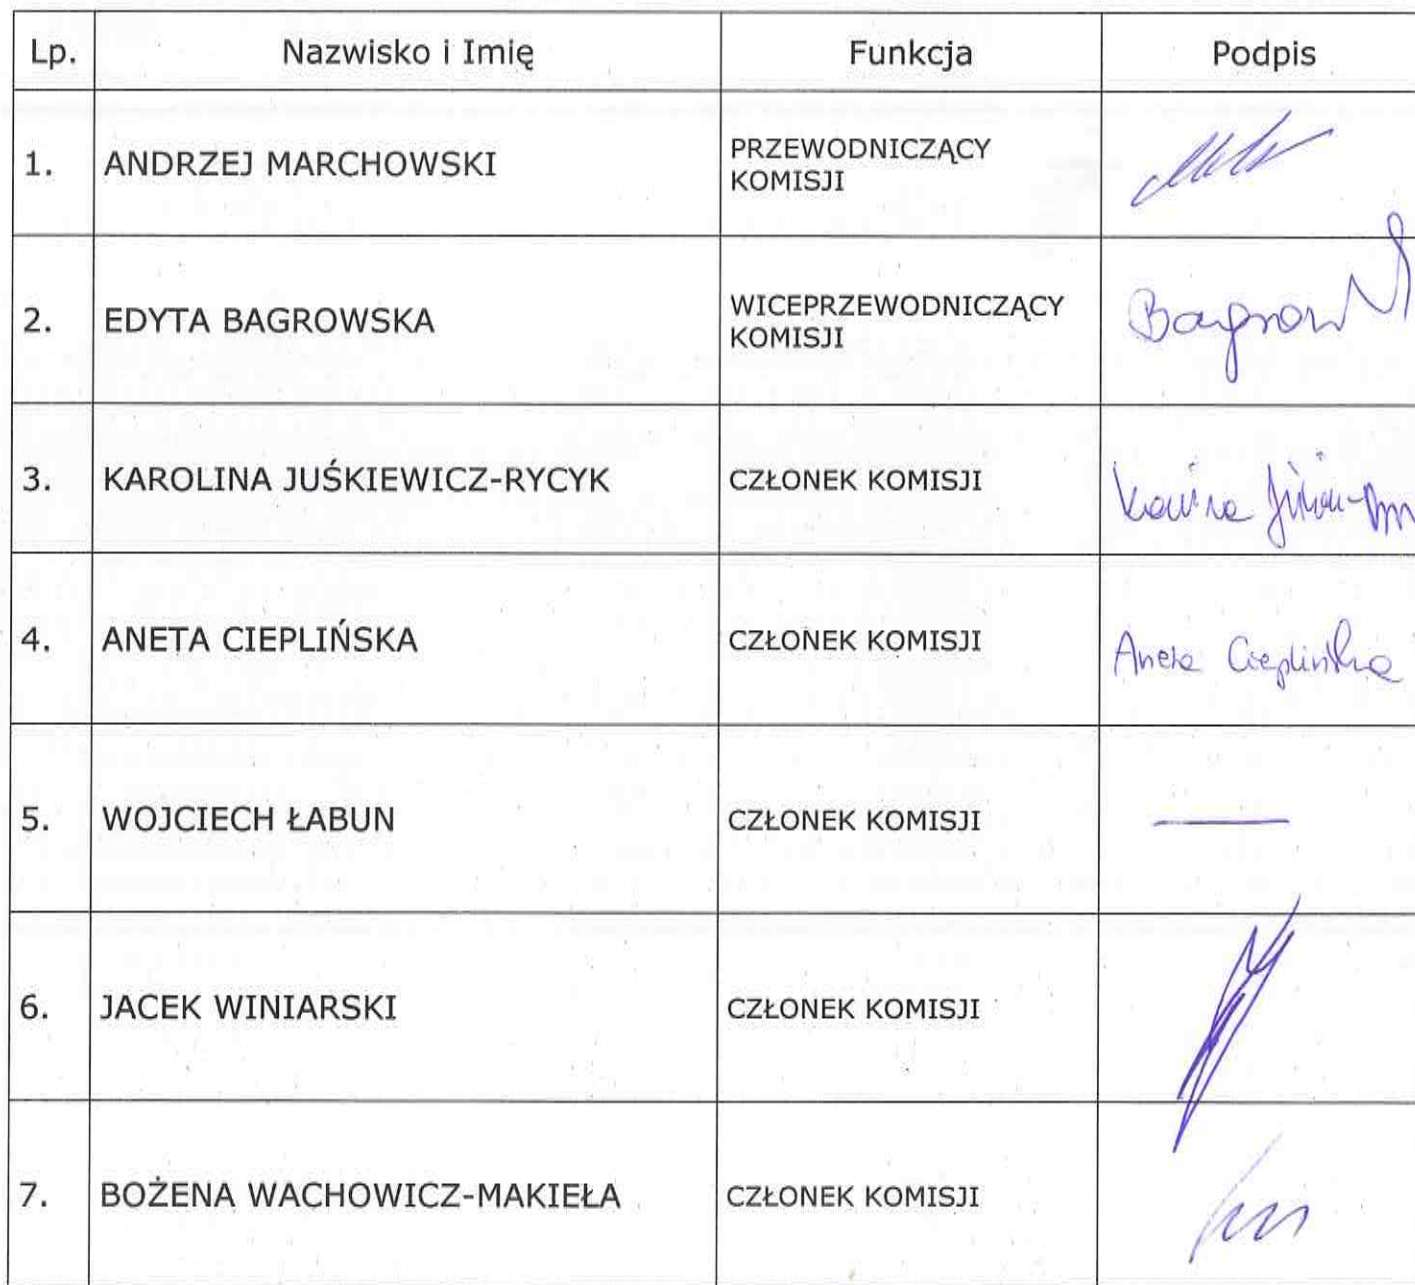 Lp. Nazwisko i Imię Funkcja Podpis
1. ANDRZEJ MARCHOWSKI PRZEWODNICZĄCY
KOMISJI
2. EDYTA BAGROWSKA WICEPRZEWODNICZĄCY
KOMISJI
3. KAROLINA JUŚKIEWICZ-RYCYK CZŁONEK KOMISJI
4. ANETA CIEPLIŃSKA CZŁONEK KOMISJI Aneta Cieplińska
5. WOJCIECH ŁABUN CZŁONEK KOMISJI —
6. JACEK WINIARSKI CZŁONEK KOMISJI
7. BOŻENA WACHOWICZ-MAKIEŁA CZŁONEK KOMISJI